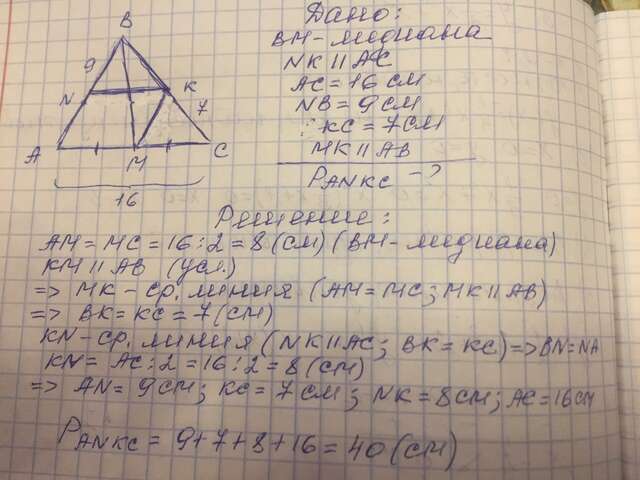 Дано:
BM - медиана
NK || AC
AC = 16 см
NB = 9 см
KC = 7 см
MK || AB
PANKC - ?
B
9
N
K
7
A
M
C
16
Решение:
AM = MC = 16 : 2 = 8 (см) (BM - медиана)
KM || AB (усл.)
=> MK - ср. линия (AM = MC; MK || AB)
=> BK = KC = 7 (см)
KN - ср. линия (NK || AC; BK = KC) => BN = NA
KN = AC : 2 = 16 : 2 = 8 (см)
=> AN = 9 см; KC = 7 см; NK = 8 см; AC = 16 см
PANKC = 9 + 7 + 8 + 16 = 40 (см)